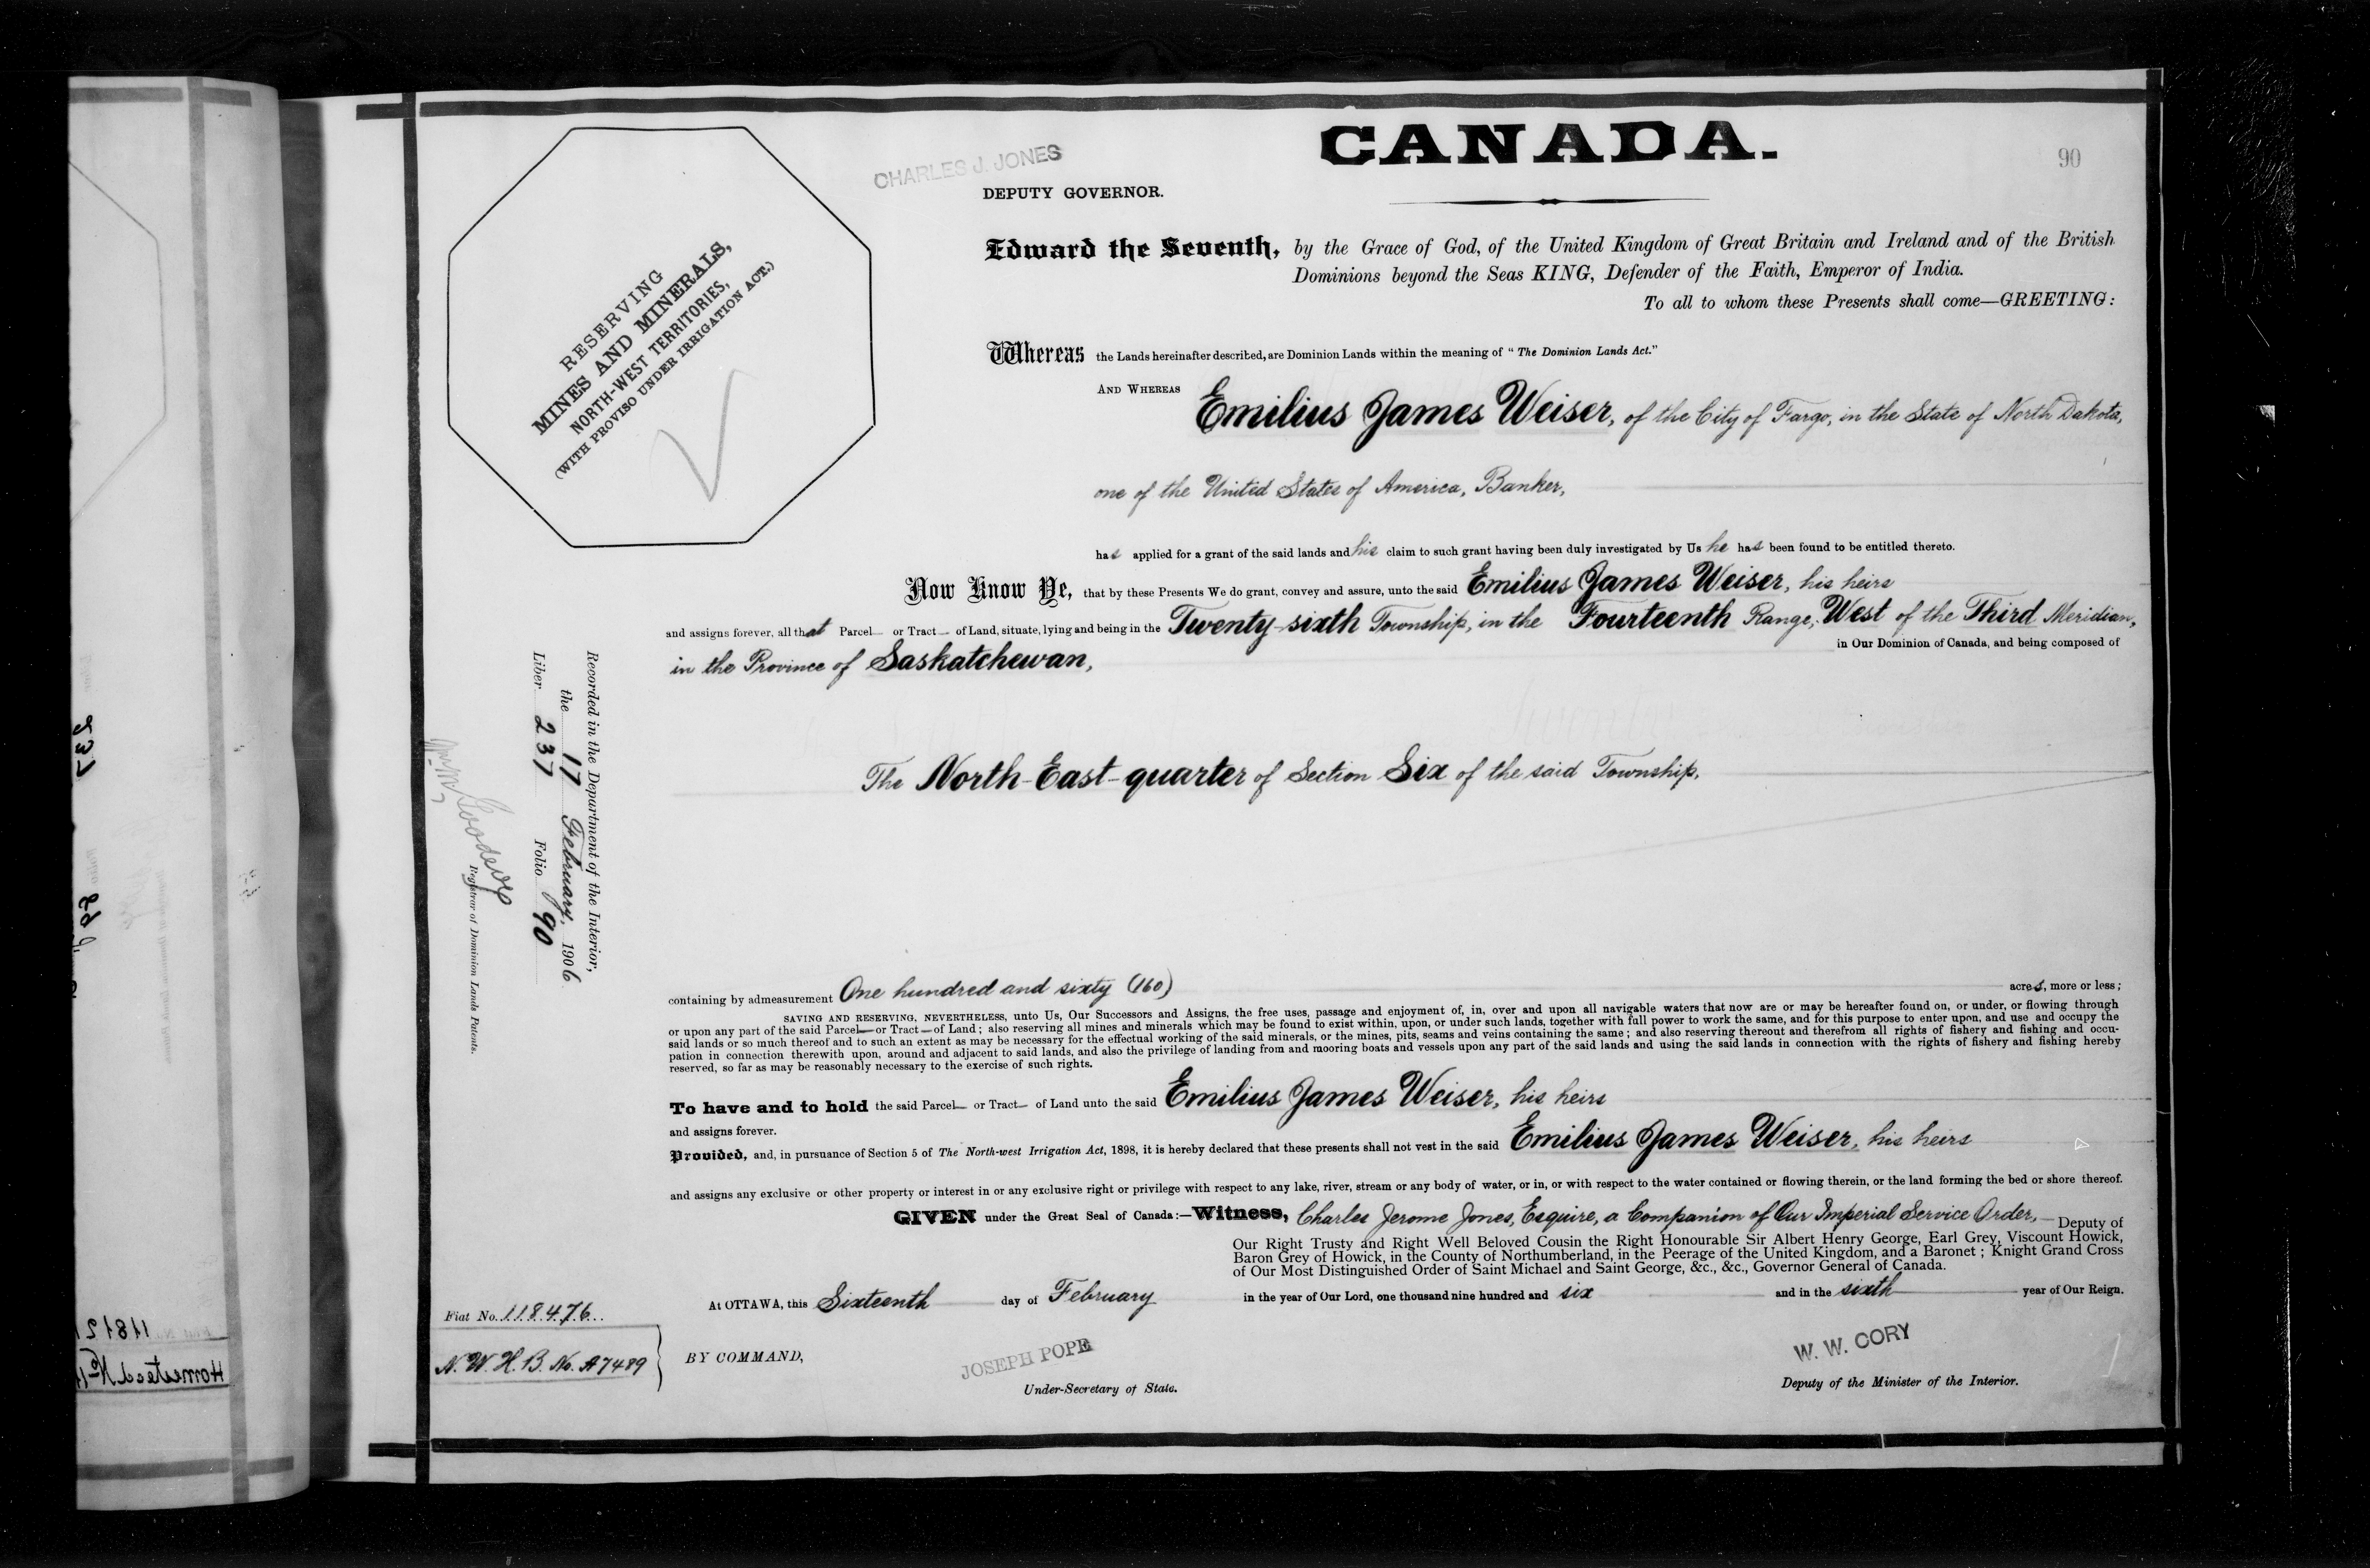 CANADA.
90
CHARLES J. JONES
DEPUTY GOVERNOR.
RESERVING
MINES AND MINERALS,
NORTH-WEST TERRITORIES,
(WITH PROVISO UNDER IRRIGATION ACT.)
Edward the Seventh, by the Grace of God, of the United Kingdom of Great Britain and Ireland and of the British
Dominions beyond the Seas KING, Defender of the Faith, Emperor of India.
To all to whom these Presents shall come—GREETING:
Whereas the Lands hereinafter described, are Dominion Lands within the meaning of "The Dominion Lands Act."
AND WHEREAS Emilius James Weiser, of the City of Fargo, in the State of North Dakota,
one of the United States of America, Banker,
has applied for a grant of the said lands and his claim to such grant having been duly investigated by Us he has been found to be entitled thereto.
Now Know Ye, that by these Presents We do grant, convey and assure, unto the said Emilius James Weiser, his heirs
and assigns forever, all that Parcel— or Tract— of Land, situate, lying and being in the Twenty-sixth Township, in the Fourteenth Range, West of the Third Meridian,
in the Province of Saskatchewan, in Our Dominion of Canada, and being composed of
The North-East-quarter of Section Six of the said Township,
Recorded in the Department of the Interior,
the 17 February, 1906
Liber 237 Folio 90
Registrar of Dominion Lands Patents.
containing by admeasurement One hundred and sixty (160) acres, more or less;
SAVING AND RESERVING, NEVERTHELESS, unto Us, Our Successors and Assigns, the free uses, passage and enjoyment of, in, over and upon all navigable waters that now are or may be hereafter found on, or under, or flowing through
or upon any part of the said Parcel—or Tract—of Land; also reserving all mines and minerals which may be found to exist within, upon, or under such lands, together with full power to work the same, and for this purpose to enter upon, and use and occupy the
said lands or so much thereof and to such an extent as may be necessary for the effectual working of the said minerals, or the mines, pits, seams and veins containing the same; and also reserving thereout and therefrom all rights of fishery and fishing and occu-
pation in connection therewith upon, around and adjacent to said lands, and also the privilege of landing from and mooring boats and vessels upon any part of the said lands and using the said lands in connection with the rights of fishery and fishing hereby
reserved, so far as may be reasonably necessary to the exercise of such rights.
To have and to hold the said Parcel— or Tract— of Land unto the said Emilius James Weiser, his heirs
and assigns forever.
Provided, and, in pursuance of Section 5 of The North-west Irrigation Act, 1898, it is hereby declared that these presents shall not vest in the said Emilius James Weiser, his heirs
and assigns any exclusive or other property or interest in or any exclusive right or privilege with respect to any lake, river, stream or any body of water, or in, or with respect to the water contained or flowing therein, or the land forming the bed or shore thereof.
GIVEN under the Great Seal of Canada:—Witness, Charles Jerome Jones, Esquire, a Companion of Our Imperial Service Order,— Deputy of
Our Right Trusty and Right Well Beloved Cousin the Right Honourable Sir Albert Henry George, Earl Grey, Viscount Howick,
Baron Grey of Howick, in the County of Northumberland, in the Peerage of the United Kingdom, and a Baronet; Knight Grand Cross
of Our Most Distinguished Order of Saint Michael and Saint George, &c., &c., Governor General of Canada.
At OTTAWA, this Sixteenth day of February in the year of Our Lord, one thousand nine hundred and six and in the sixth year of Our Reign.
Fiat No. 118476
N. W. H. B. No. A7489
BY COMMAND,
JOSEPH POPE
Under-Secretary of State.
W. W. CORY
Deputy of the Minister of the Interior.